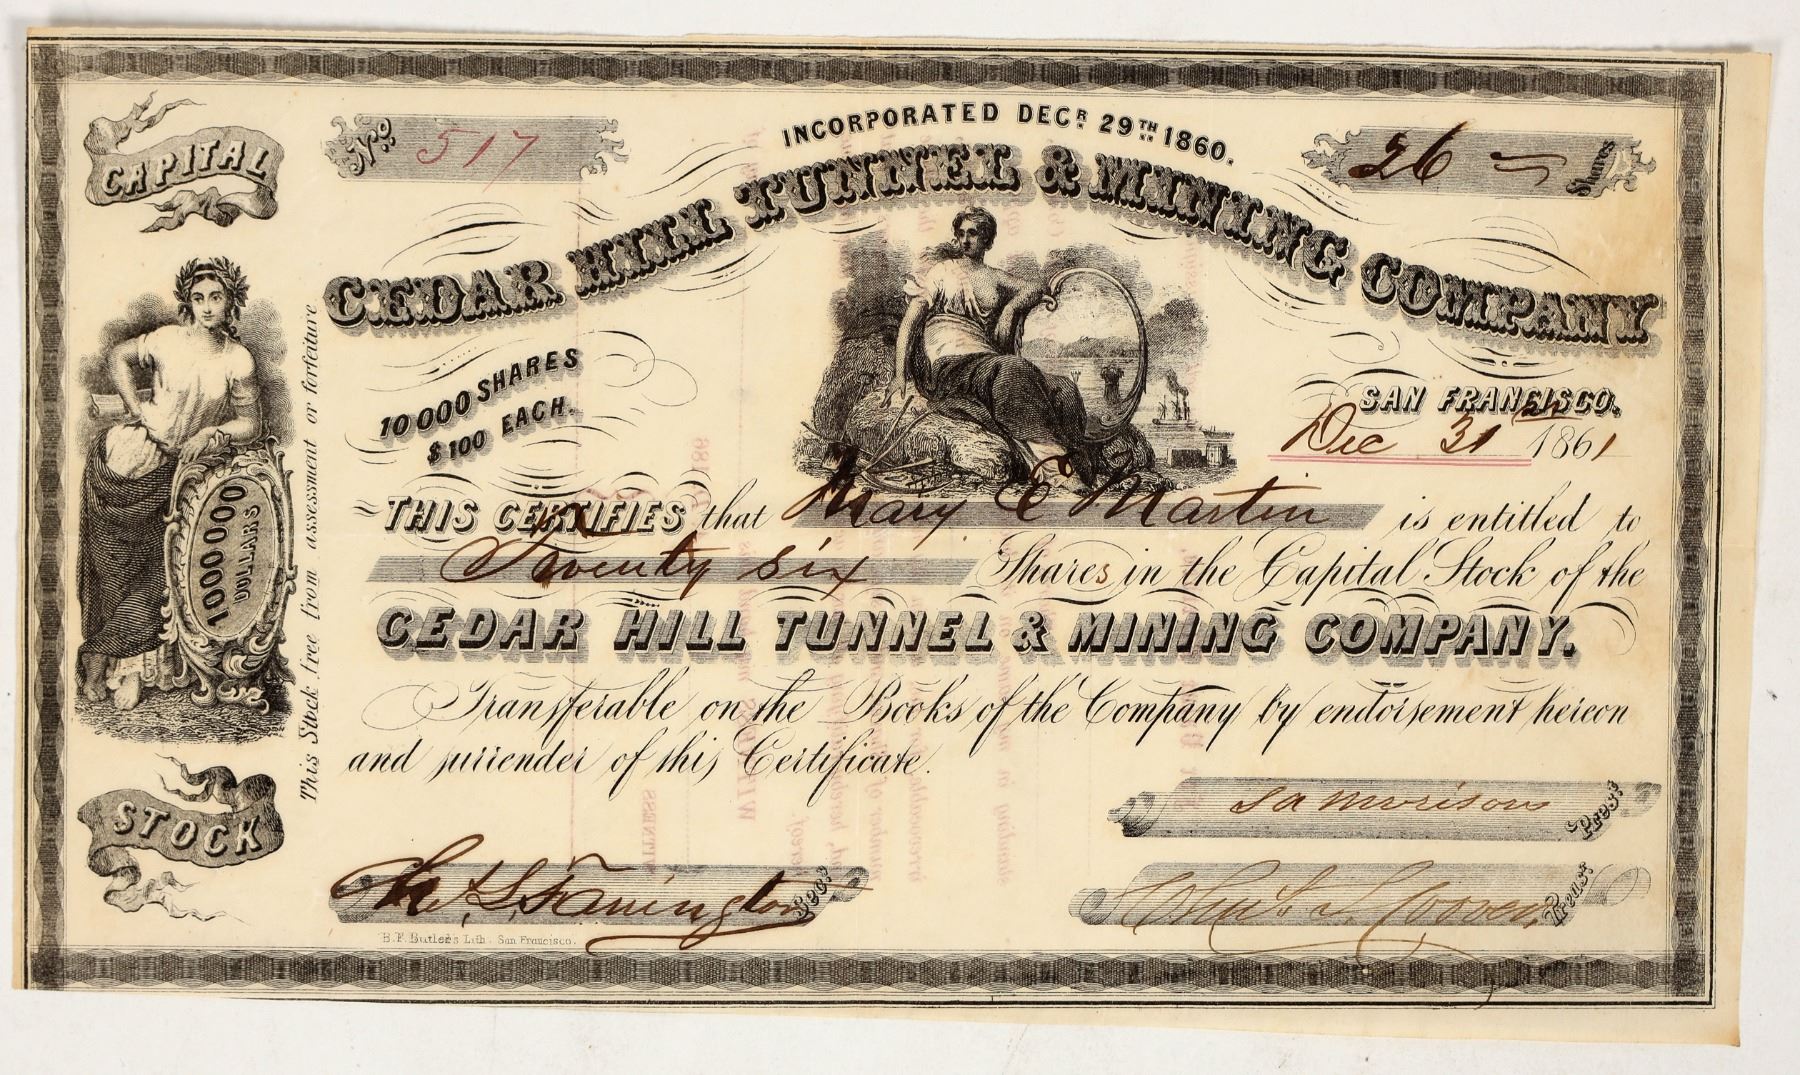 CAPITAL
No. 517
INCORPORATED DECR. 29TH 1860.
26 Shares
CEDAR HILL TUNNEL & MINING COMPANY
10000 SHARES
$100 EACH.
SAN FRANCISCO.
Dec 31st 1861
1000000
DOLLARS
This Stock free from assessment or forfeiture
THIS CERTIFIES that Mary E Martin is entitled to
Twenty six Shares in the Capital Stock of the
CEDAR HILL TUNNEL & MINING COMPANY.
Transferable on the Books of the Company by endorsement hereon
and surrender of this Certificate.
STOCK
S A Morrison Prest
Farrington Secy
Chas S. Treas.
B. F. Butler's Lith. San Francisco.